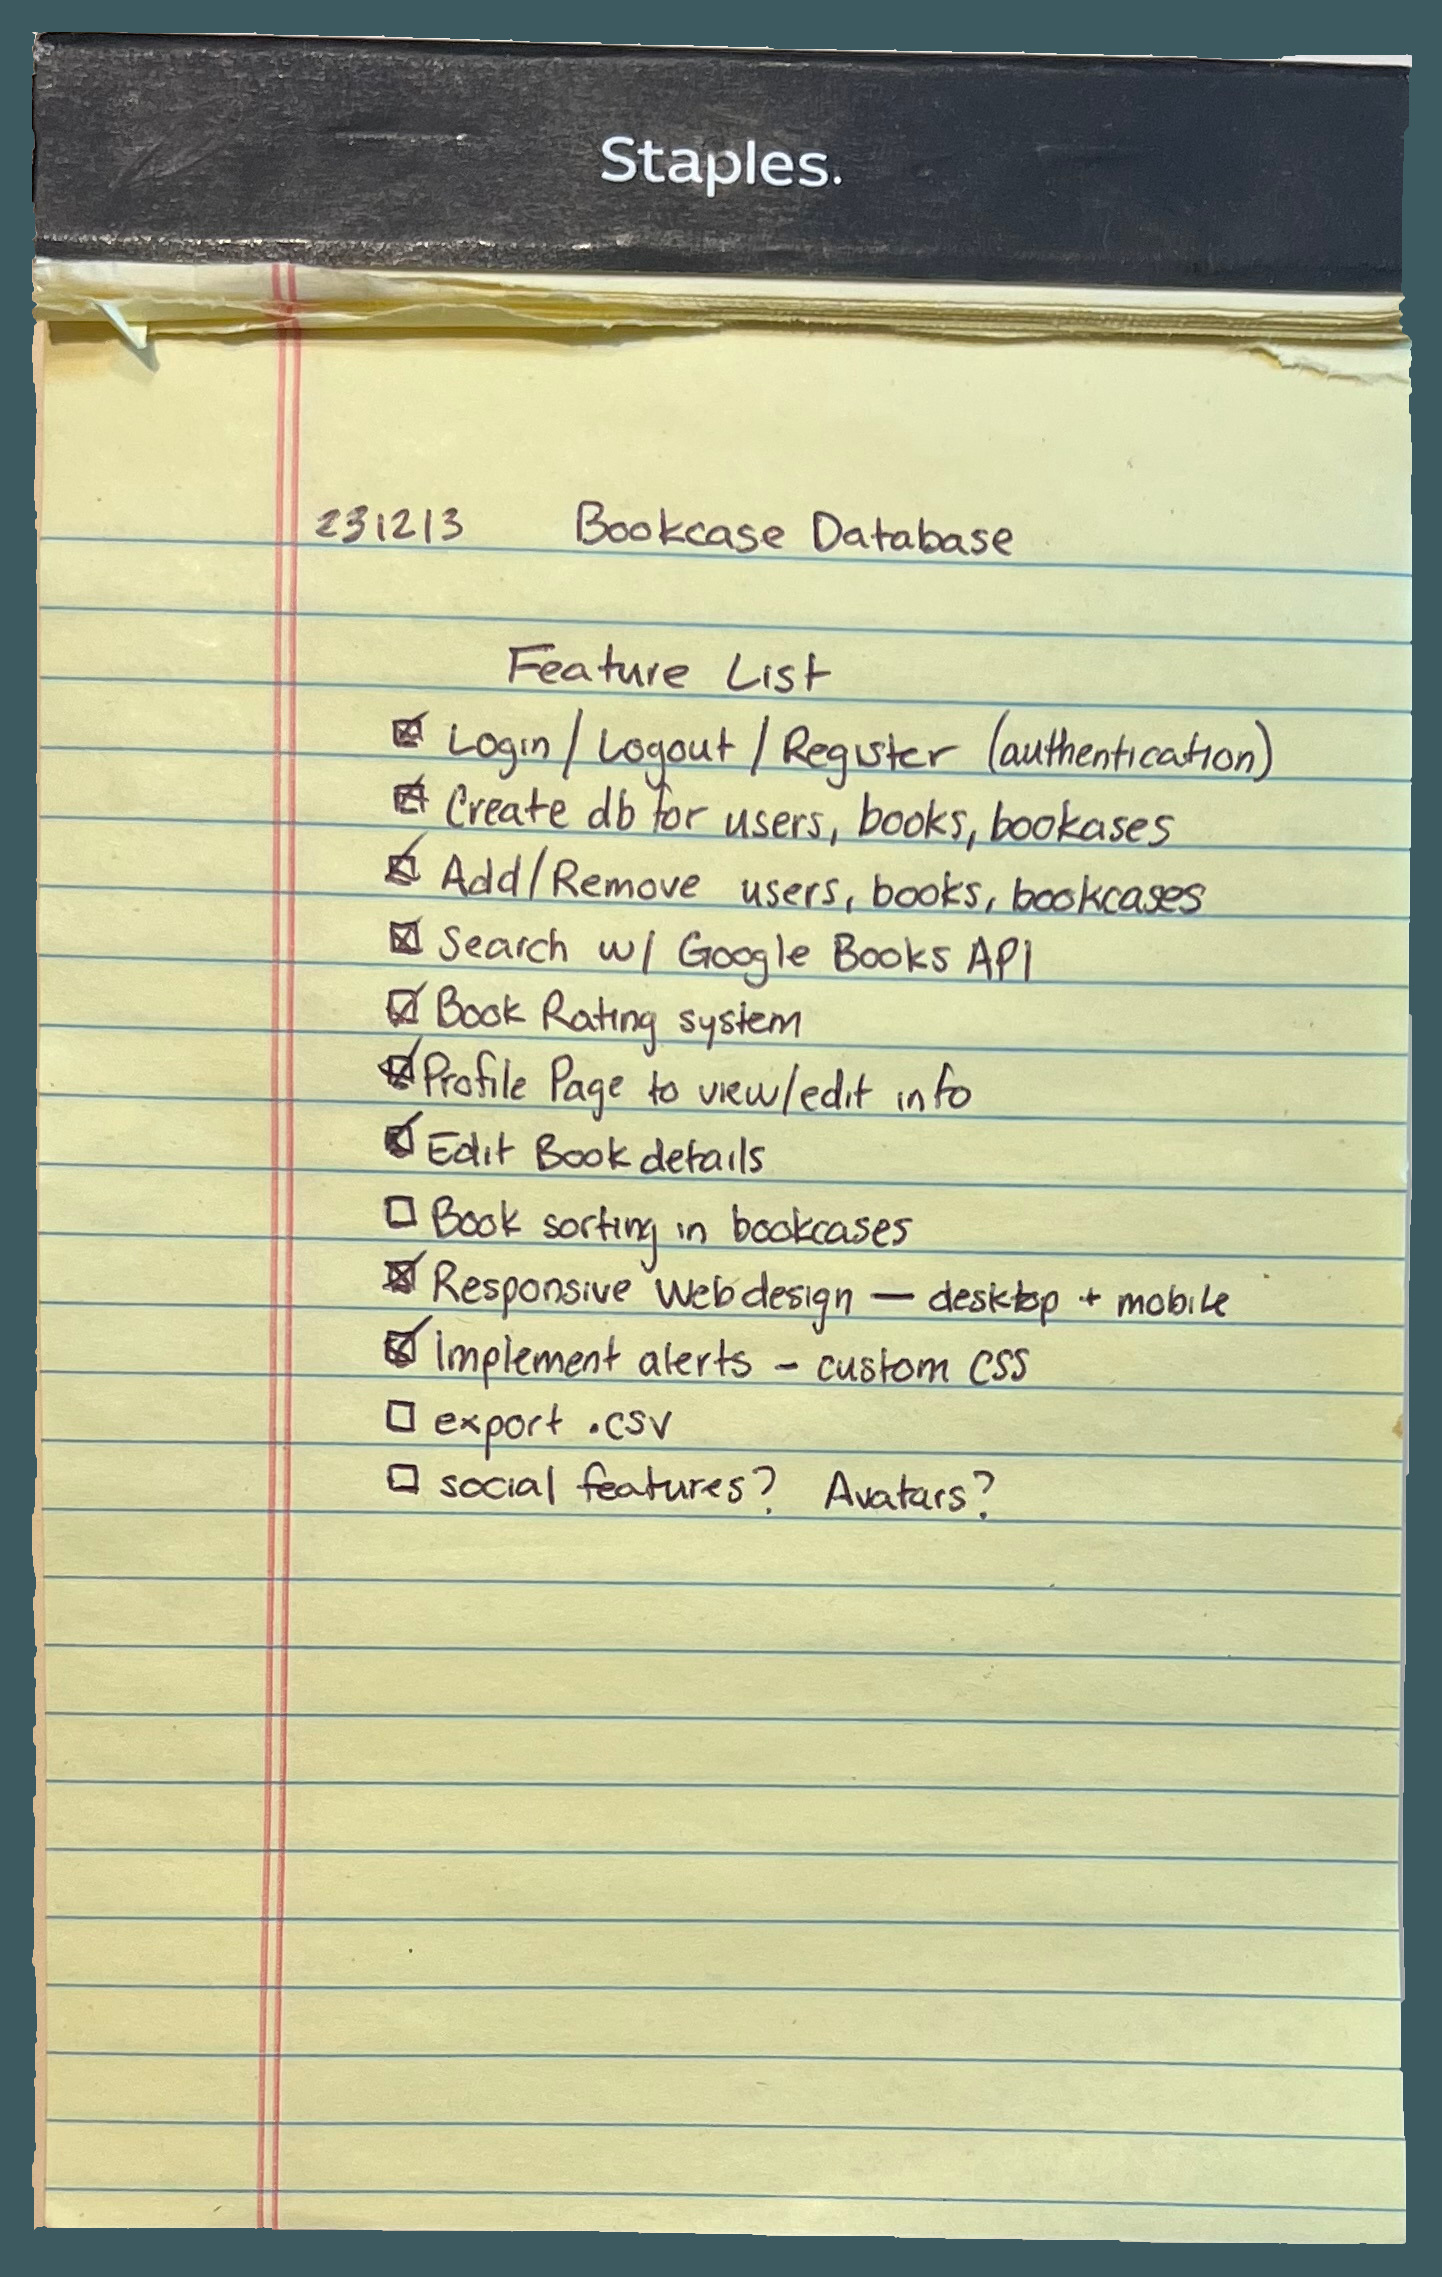 Staples.
231213 Bookcase Database
Feature List
☒ Login / Logout / Register (authentication)
☒ Create db for users, books, bookases
☑ Add/Remove users, books, bookcases
☒ Search w/ Google Books API
☑ Book Rating system
☑ Profile Page to view/edit info
☑ Edit Book details
☐ Book sorting in bookcases
☒ Responsive Web design — desktop + mobile
☑ Implement alerts - custom CSS
☐ export .csv
☐ social features? Avatars?